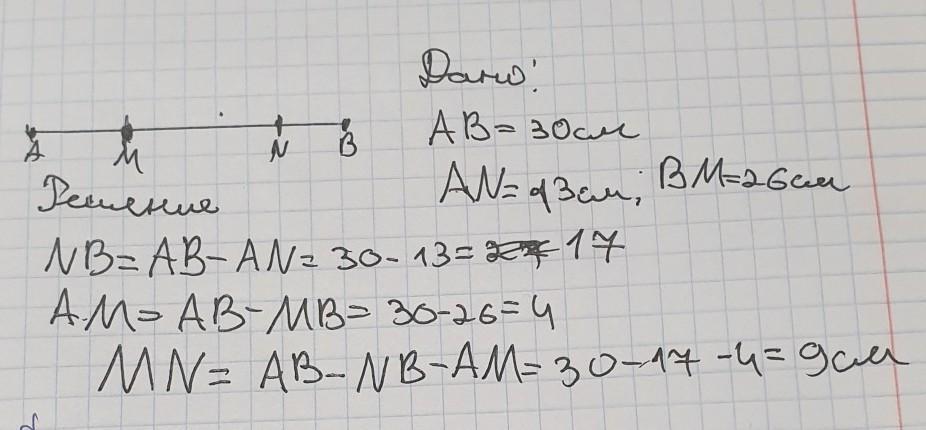 Дано:
AB = 30 см
AN = 13 см; BM = 26 см
A M N B
Решение
NB = AB - AN = 30 - 13 = 17
AM = AB - MB = 30 - 26 = 4
MN = AB - NB - AM = 30 - 17 - 4 = 9 см